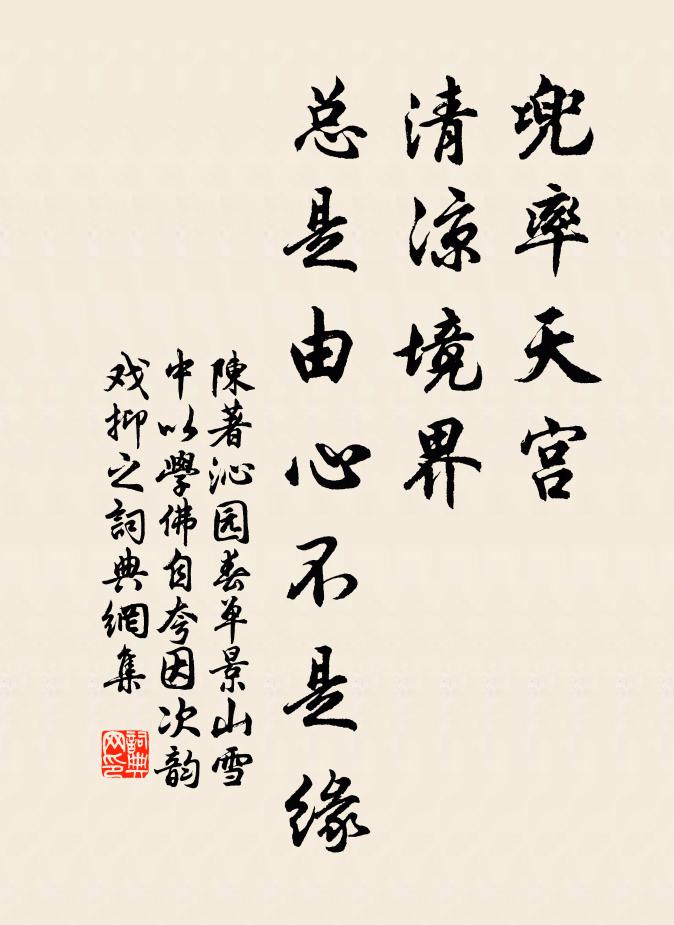 兜率天宫
清凉境界
总是由心不是缘
陳著沁园春单景山雪
中以學佛自夸因次韵
戏抑之詞典網集
詞典网印